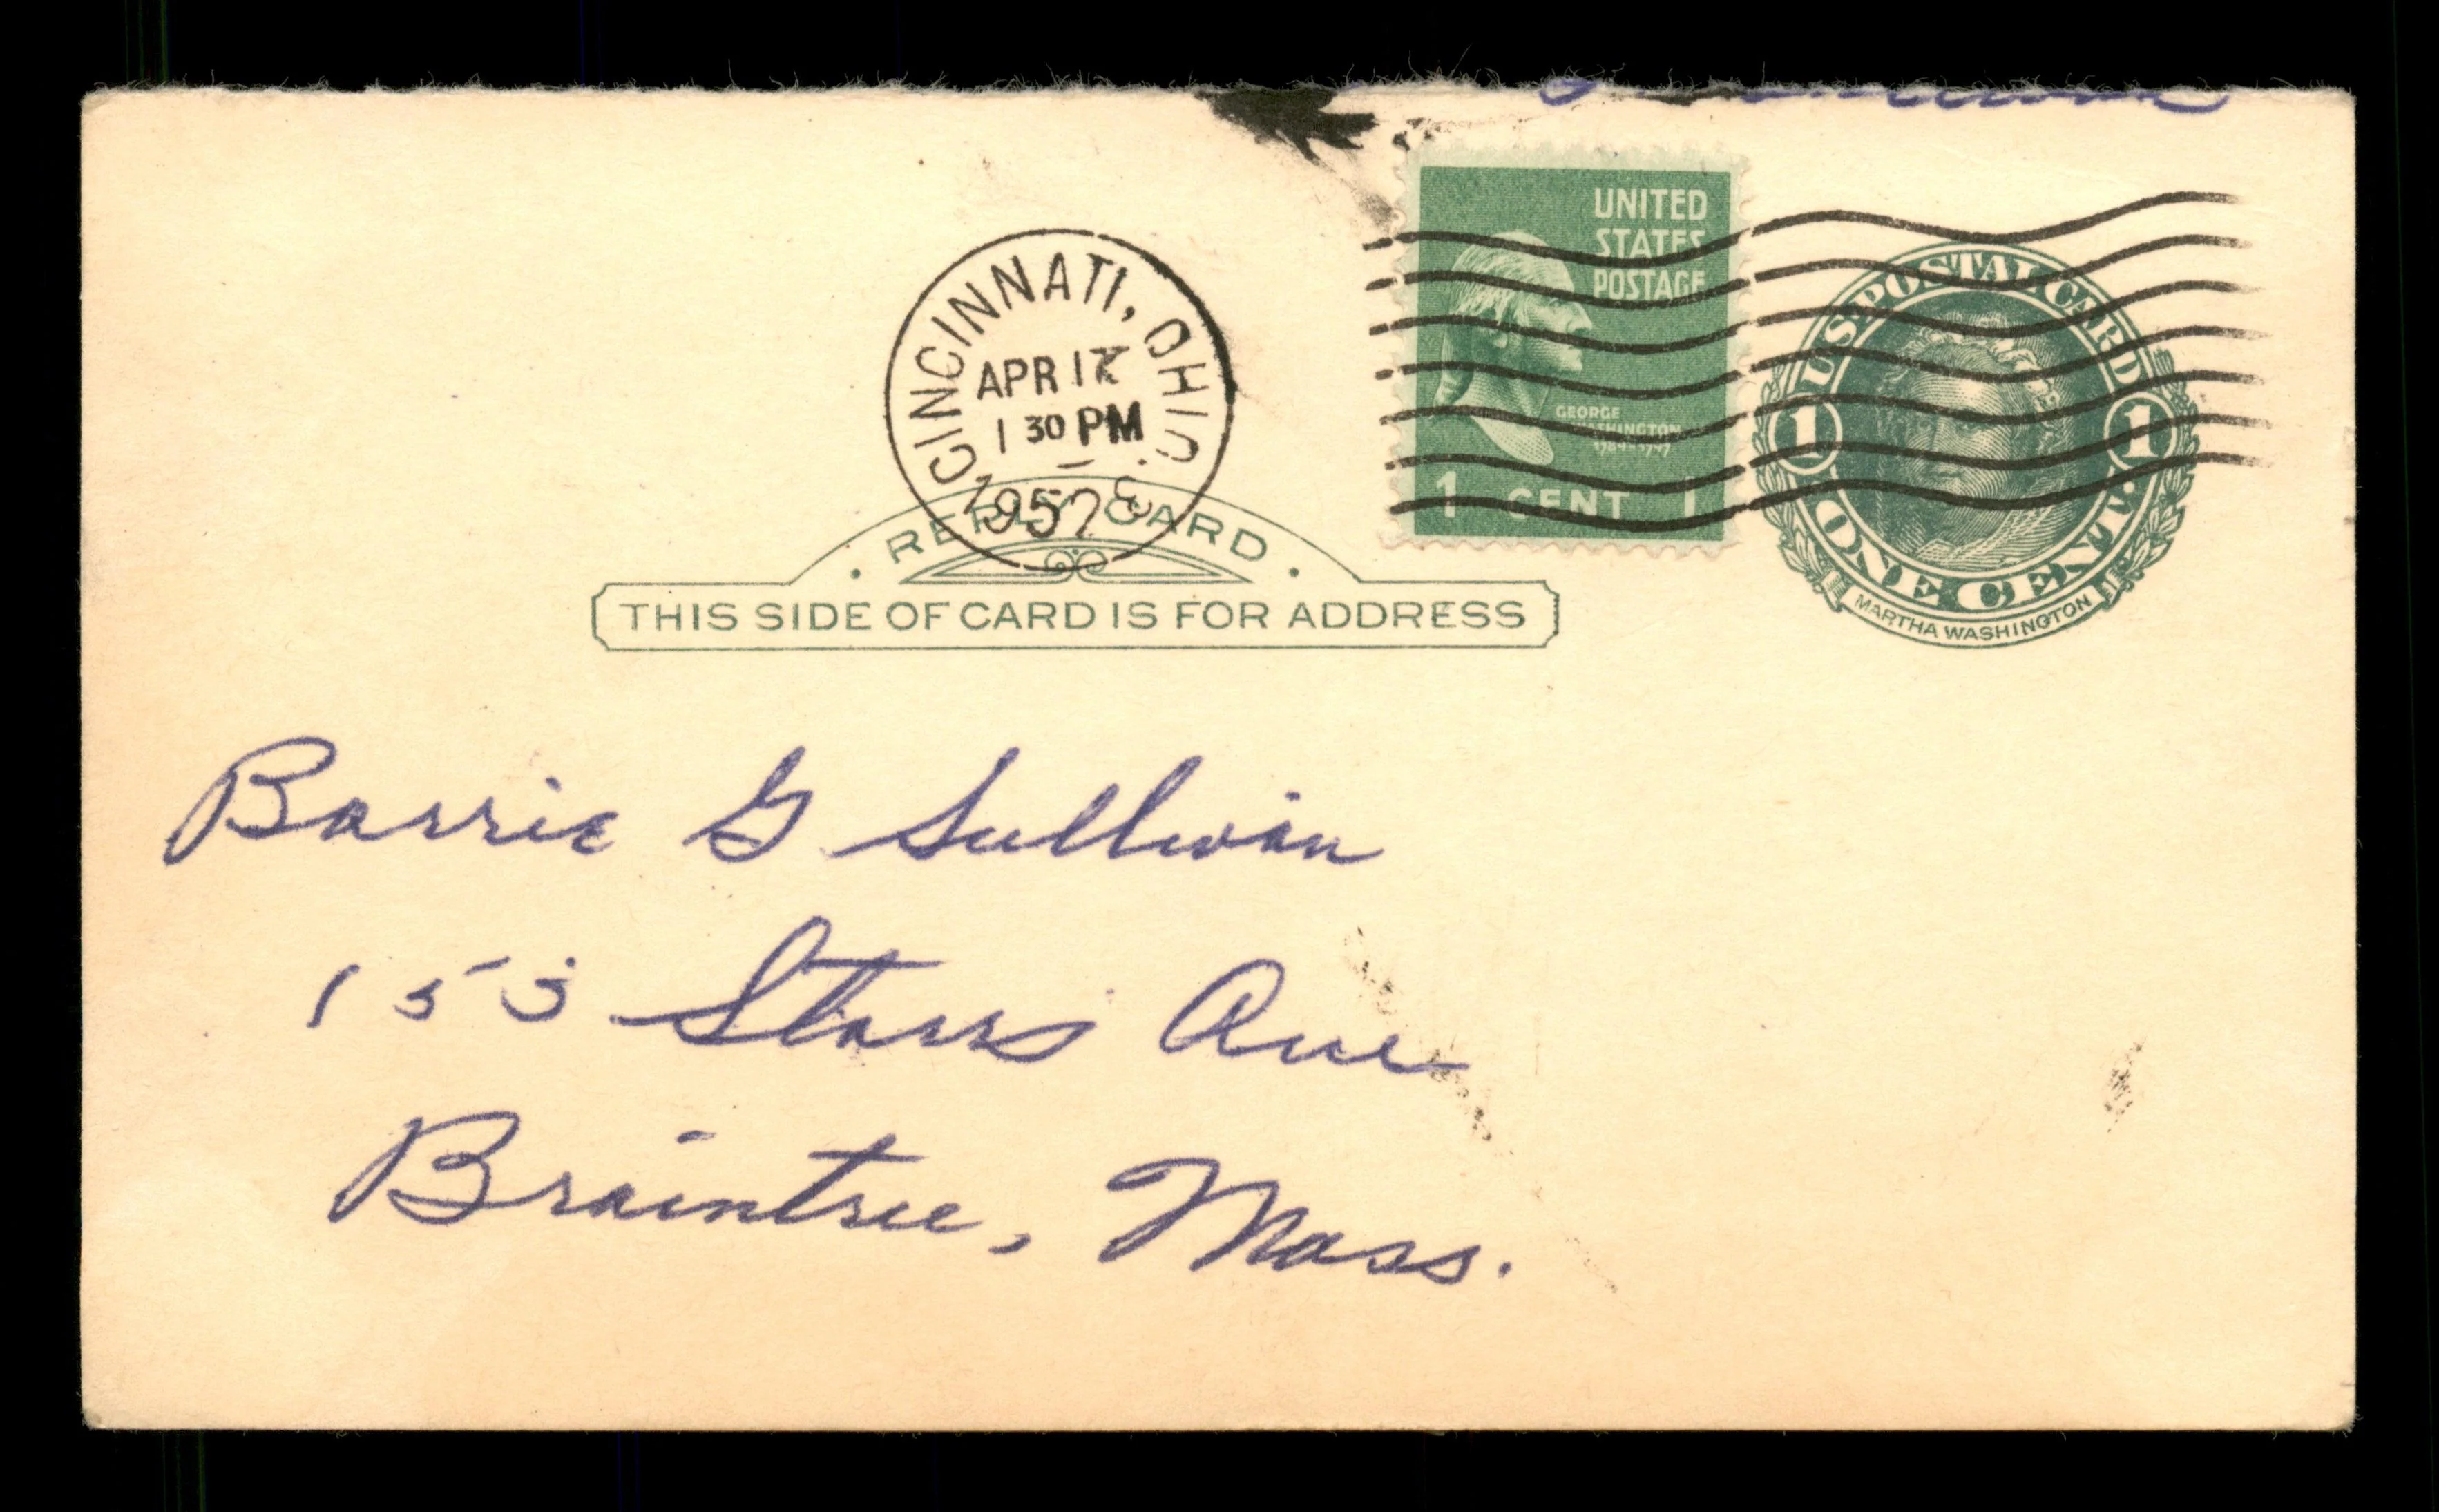 CINCINNATI, OHIO.
APR 17
1 30 PM
1957
UNITED
STATES
POSTAGE
GEORGE
WASHINGTON
1789-1797
1 CENT 1
U.S. POSTAL CARD
1 1
ONE CENT.
MARTHA WASHINGTON
· REPLY CARD ·
THIS SIDE OF CARD IS FOR ADDRESS
Barrie G Sullivan
153 Starrs Ave
Braintree, Mass.